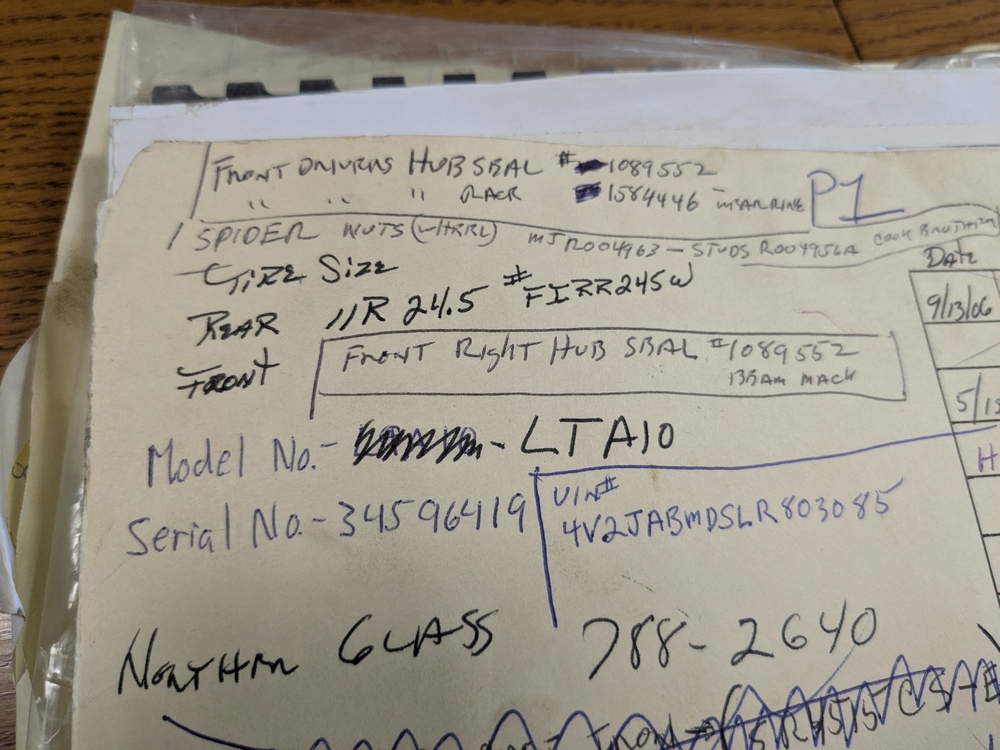 FRONT DRIVERS HUB SEAL # 1089552
" " " REAR 1584446
P1
SPIDER NUTS MJR004963 - STUDS R004956A COOK BROTHERS
TIRE SIZE
REAR 11R 24.5 # FIRR245W
FRONT
FRONT Right HUB SEAL # 1089552
MACK
Date
9/13/06
5/15
H
Model No. - - LTA10
Serial No. - 34596419
VIN#
4V2JABMDSLR803085
NORTHERN GLASS 788-2640